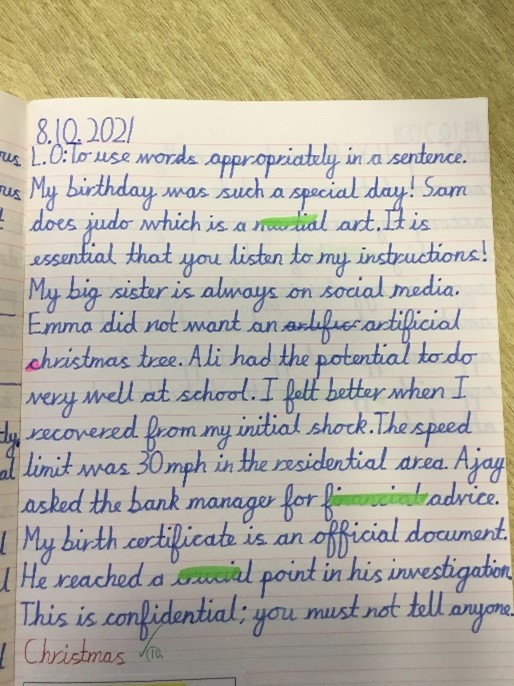 8.10.2021
L.O: To use words appropriately in a sentence.
My birthday was such a special day! Sam
does judo which is a martial art. It is
essential that you listen to my instructions!
My big sister is always on social media.
Emma did not want an artificial
christmas tree. Ali had the potential to do
very well at school. I felt better when I
recovered from my initial shock. The speed
limit was 30mph in the residential area. Ajay
asked the bank manager for financial advice.
My birth certificate is an official document.
He reached a crucial point in his investigation.
This is confidential; you must not tell anyone.
Christmas